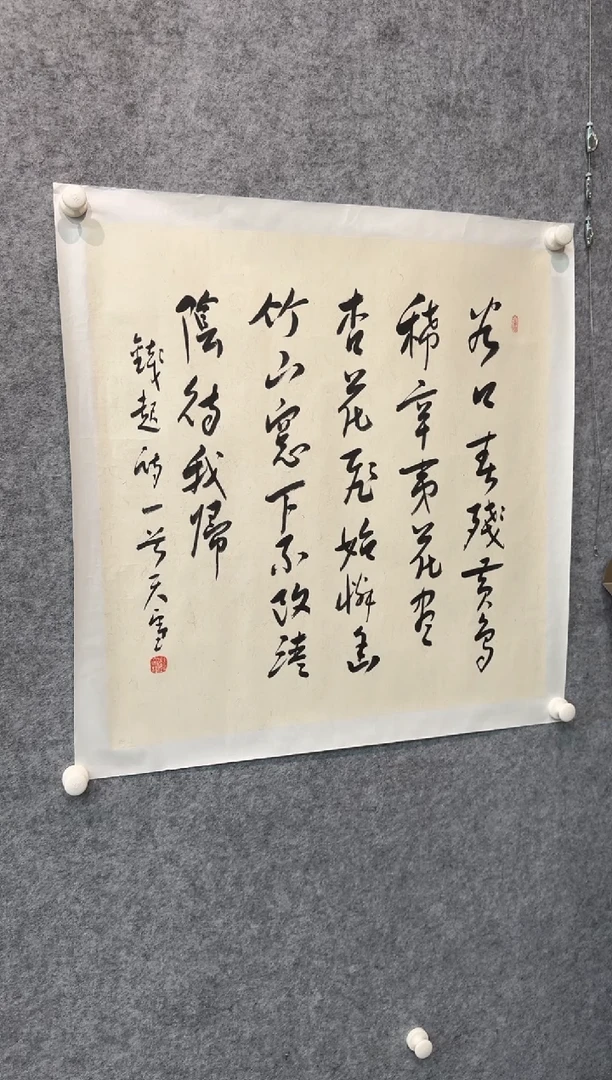 谷口春殘黄鳥
稀辛夷花盡
杏花飛始憐幽
竹山窓下不改清
陰待我歸
錢起詩一首天雪